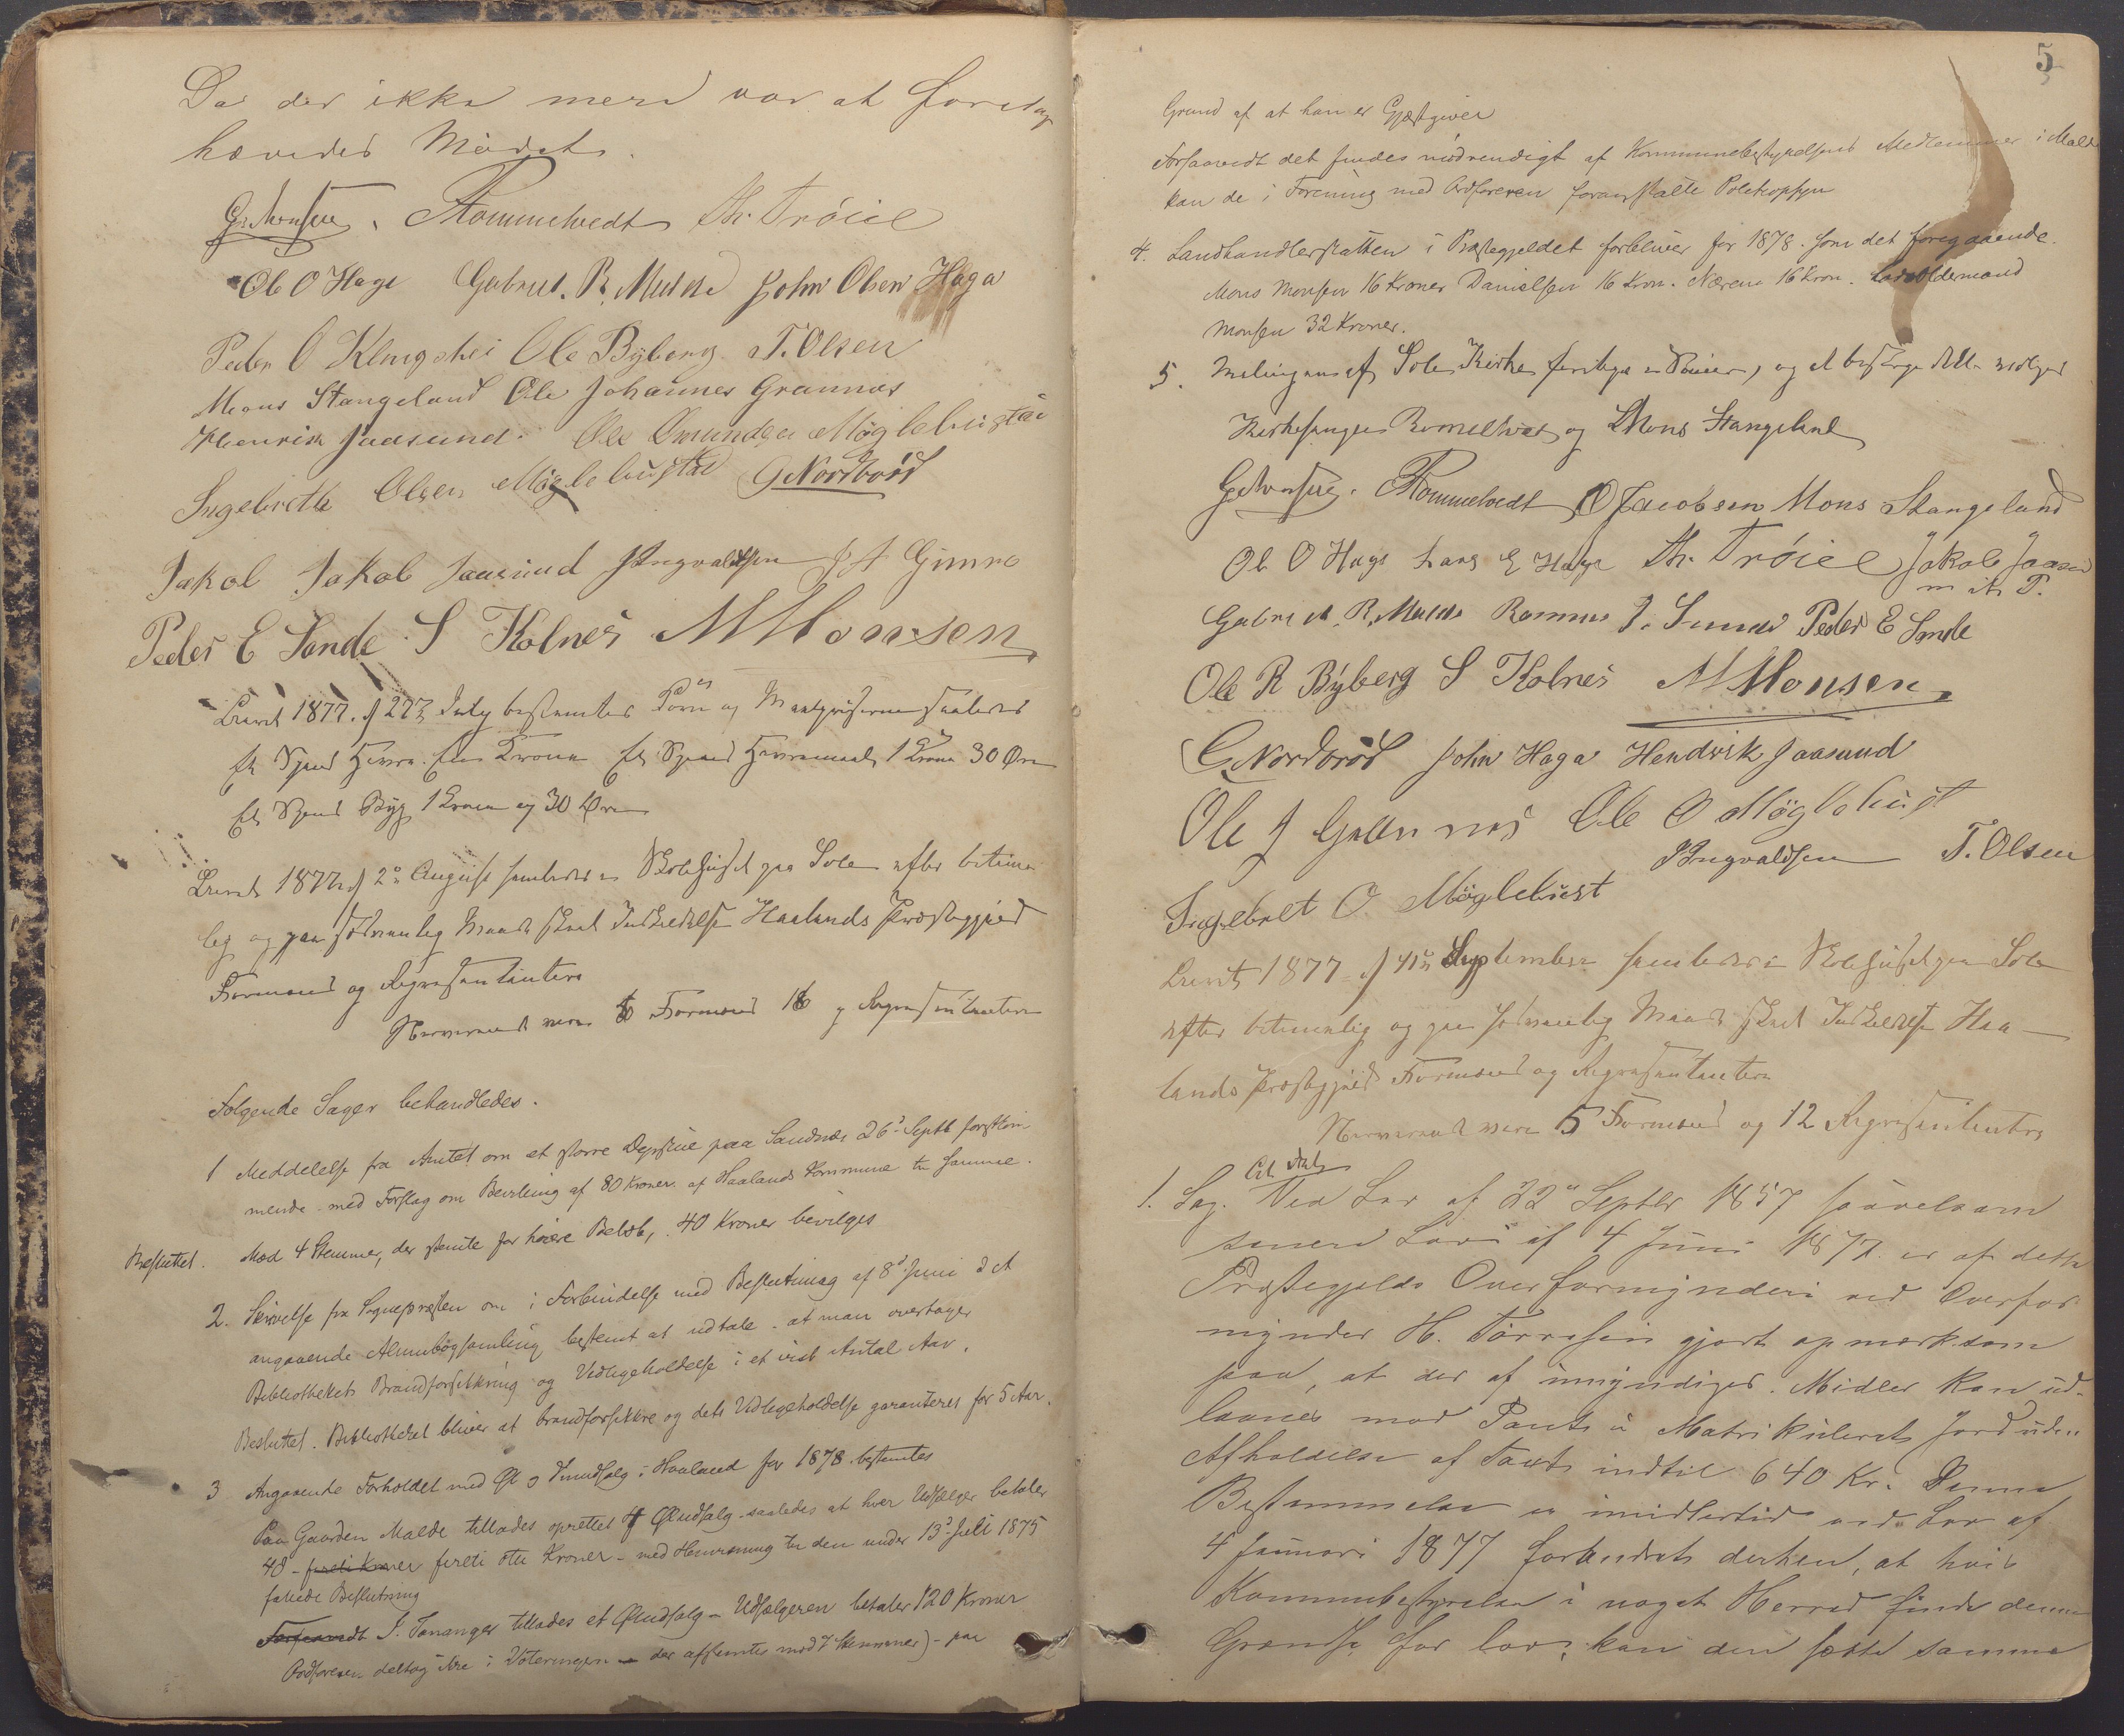 Da der ikke mere var at foretage
hævedes Mødet.
Rommetvedt Th. Trøiel
Ole O Hage Gabriel. R. Malde John Olsen Haga
Peder O Ole Byberg T. Olsen
Mons Stangeland Ole Johannes Grannæs
Henrik Jaasund. Ole Omundsen Møglebustad
Ingebreth Olsen Møglebustad G Nordbød
Jakob Jakob Jaasund J Ingvaldsen J A Gimre
Peder E Sande S Kolnes M Monsen
Aaret 1877. d 27 July bestemtes og saaledes
et Spand Havre een Krone et Spand Havremalt 1 Krone 30 Øre
et Spand Byg 1 Krone og 30 Øre
Aaret 1877 d 2n August samledes i Skolehuset paa Sole efter betime-
lig og paa lovmæssig Maade skeet Indkaldelse Haalands Præstegjeld
Formænd og Repræsentantere
Nærværende vare Formænd og Repræsentantere
Følgende Sager behandledes.
1 Meddelelse fra Amtet om et større Dyrskue paa Sandnæs 26d Septb forstkom-
mende med Forslag om Bevilling af 80 Kroner af Haalands Kommune til samme.
Besluttet. Mod 4 Stemmer, der stemte for høiere Beløb, 40 Kroner bevilges
2. Skrivelse fra Sognepræsten om i Forbindelse med Beslutning af 8d Juni d A
angaaende Almubogsamling bestemt at udtale at man overtager
Bibliothekets Brandforsikring og Vedligeholdelse i et vist Antal Aar.
Besluttet. Bibliotheket bliver at brandforsikkre og dets Vedligeholdelse garanteres for 5 Aar.
3 Angaaende Forholdet med Øl og Vinudsalg i Haaland for 1878 bestemtes
Paa Gaarden Malde tillades oprettet 4 Øludsalg saaledes at hver Udsælger betaler
48 - firetikroner fireti otte Kroner - med Henvisning til den under 13d Juli 1875
fattede Beslutning
Forsaavidt I. Tananger tillades et Øludsalg - Udsælgeren betaler 120 Kroner
Ordføreren deltog ikke i Voteringen - der afstemtes mod 7 Stemmer) - paa
5
Grund af at han er Gjæstgiver
Forsaavidt det findes nødvendigt af Kommunebestyrelsens Medlemmer i Malde
kan de i Forening med Ordføreren foranstalte Politiopsyn
4. Landhandlerskatten i Præstegjeldet forbliver for 1878. som det foregaaende.
Mons Monsen 16 Kroner Danielsen 16 Kron. Nærem 16 Kron. Oldermand
Monsen 32 Kroner.
5. Malingen af Sole Kirke og at besørge dette vælges
Kirkesanger Romeltvet og Mons Stangeland
Rommetvedt O Jacobsen Mons Stangeland
Ole O Hage Lars E Hage Th. Trøiel Jakob Jaasund
m it P.
Gabriel. R. Malde Rasmus J. Peder E Sande
Ole R Byberg S Kolnes M Monsen
G Nordbrød John Haga Hendrik Jaasund
Ole J Grannæs Ole O Møglebust
J Ingvaldsen T. Olsen
Ingebret O Møglebust
Aaret 1877 d September samledes i Skolehuset paa Sole
efter betimelig og paa lovmæssig Maade skeet Indkaldelse Haa-
lands Præstegjeld Formænd og Repræsentantere
Nærværende vare 5 Formænd og 12 Repræsentantere
1. Sag. Ved Lov af 22n Septbr 1857 saavelsom
senere Lov af 4 Juni 1877 er af dette
Præstegjelds Overformynderi ved Overfor
mynder H. Tørresen gjort opmærksom
paa, at der af umyndiges Midler kan ud-
laanes mod Pant i Matrikuleret Jord uden
Afholdelse af Taxt indtil 640 Kr. Denne
Bestemmelse er imidlertid ved Lov af
4 Januari 1877 forandret derhen, at hvis
Kommunbestyrelse i noget Herred finde denne
Grændse for lav, kan den sætte samme